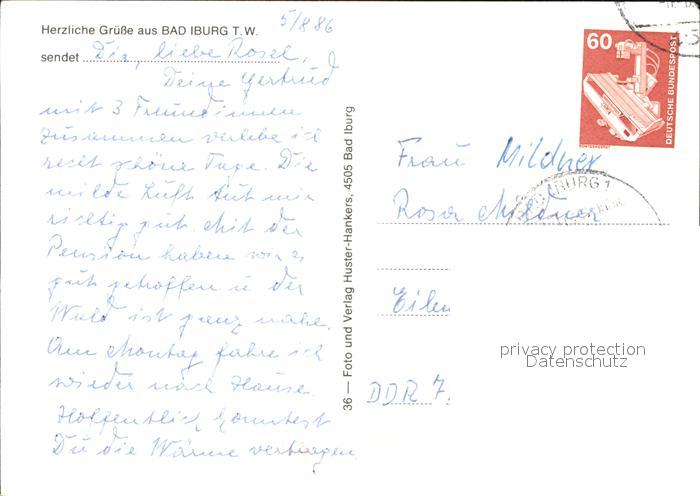 Herzliche Grüße aus BAD IBURG T.W.
5/8 86
sendet Dir, liebe Rosel,
Deine Gertrud
mit 3 Freundinnen
zusammen verlebe ich
recht schöne Tage. Die
milde Luft tut mir
richtig gut. Mit der
Pension haben wir es
gut getroffen u der
Wald ist ganz nahe.
Am Montag fahre ich
wieder nach Hause.
Hoffentlich konntest
Du die Wärme vertragen
36 — Foto und Verlag Huster-Hankers, 4505 Bad Iburg
60
DEUTSCHE BUNDESPOST
BURG 1
Frau Mildner
Rosa Mildner
Eilen
DDR 7.
privacy protection
Datenschutz